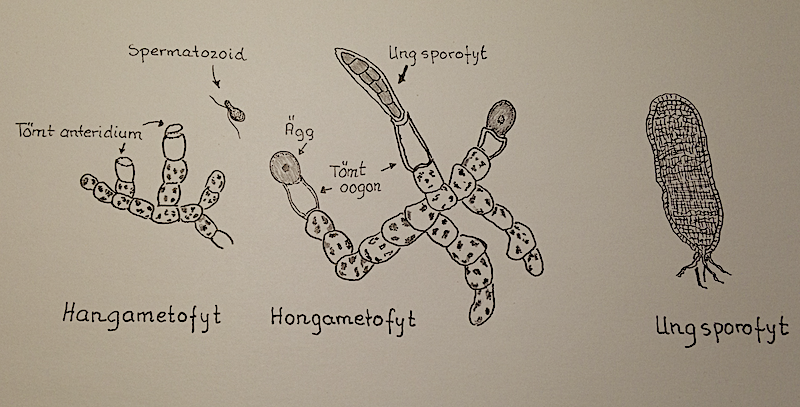 Spermatozoid
Ung sporofyt
Tömt anteridium
Ägg
Tömt
oogon
Hangametofyt
Hongametofyt
Ung sporofyt